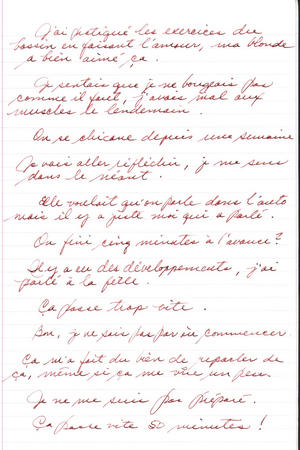 J'ai pratiqué les exercices du
bassin en faisant l'amour, ma blonde
a bien aimé ça.
Je sentais que je ne bougeais pas
comme il faut, j'avais mal aux
muscles le lendemain.
On se chicane depuis une semaine
Je vais aller réfléchir, je me sens
dans le néant.
Elle voulait qu'on parle dans l'auto
mais il y a juste moi qui a parlé.
On fini cinq minutes à l'avance?
Il y a eu des développements, j'ai
parlé à la fille.
Ça passe trop vite.
Bon, je ne sais pas par où commencer.
Ça m'a fait du bien de reparler de
ça, même si ça me vire un peu.
Je ne me suis pas préparé.
Ça passe vite 50 minutes!